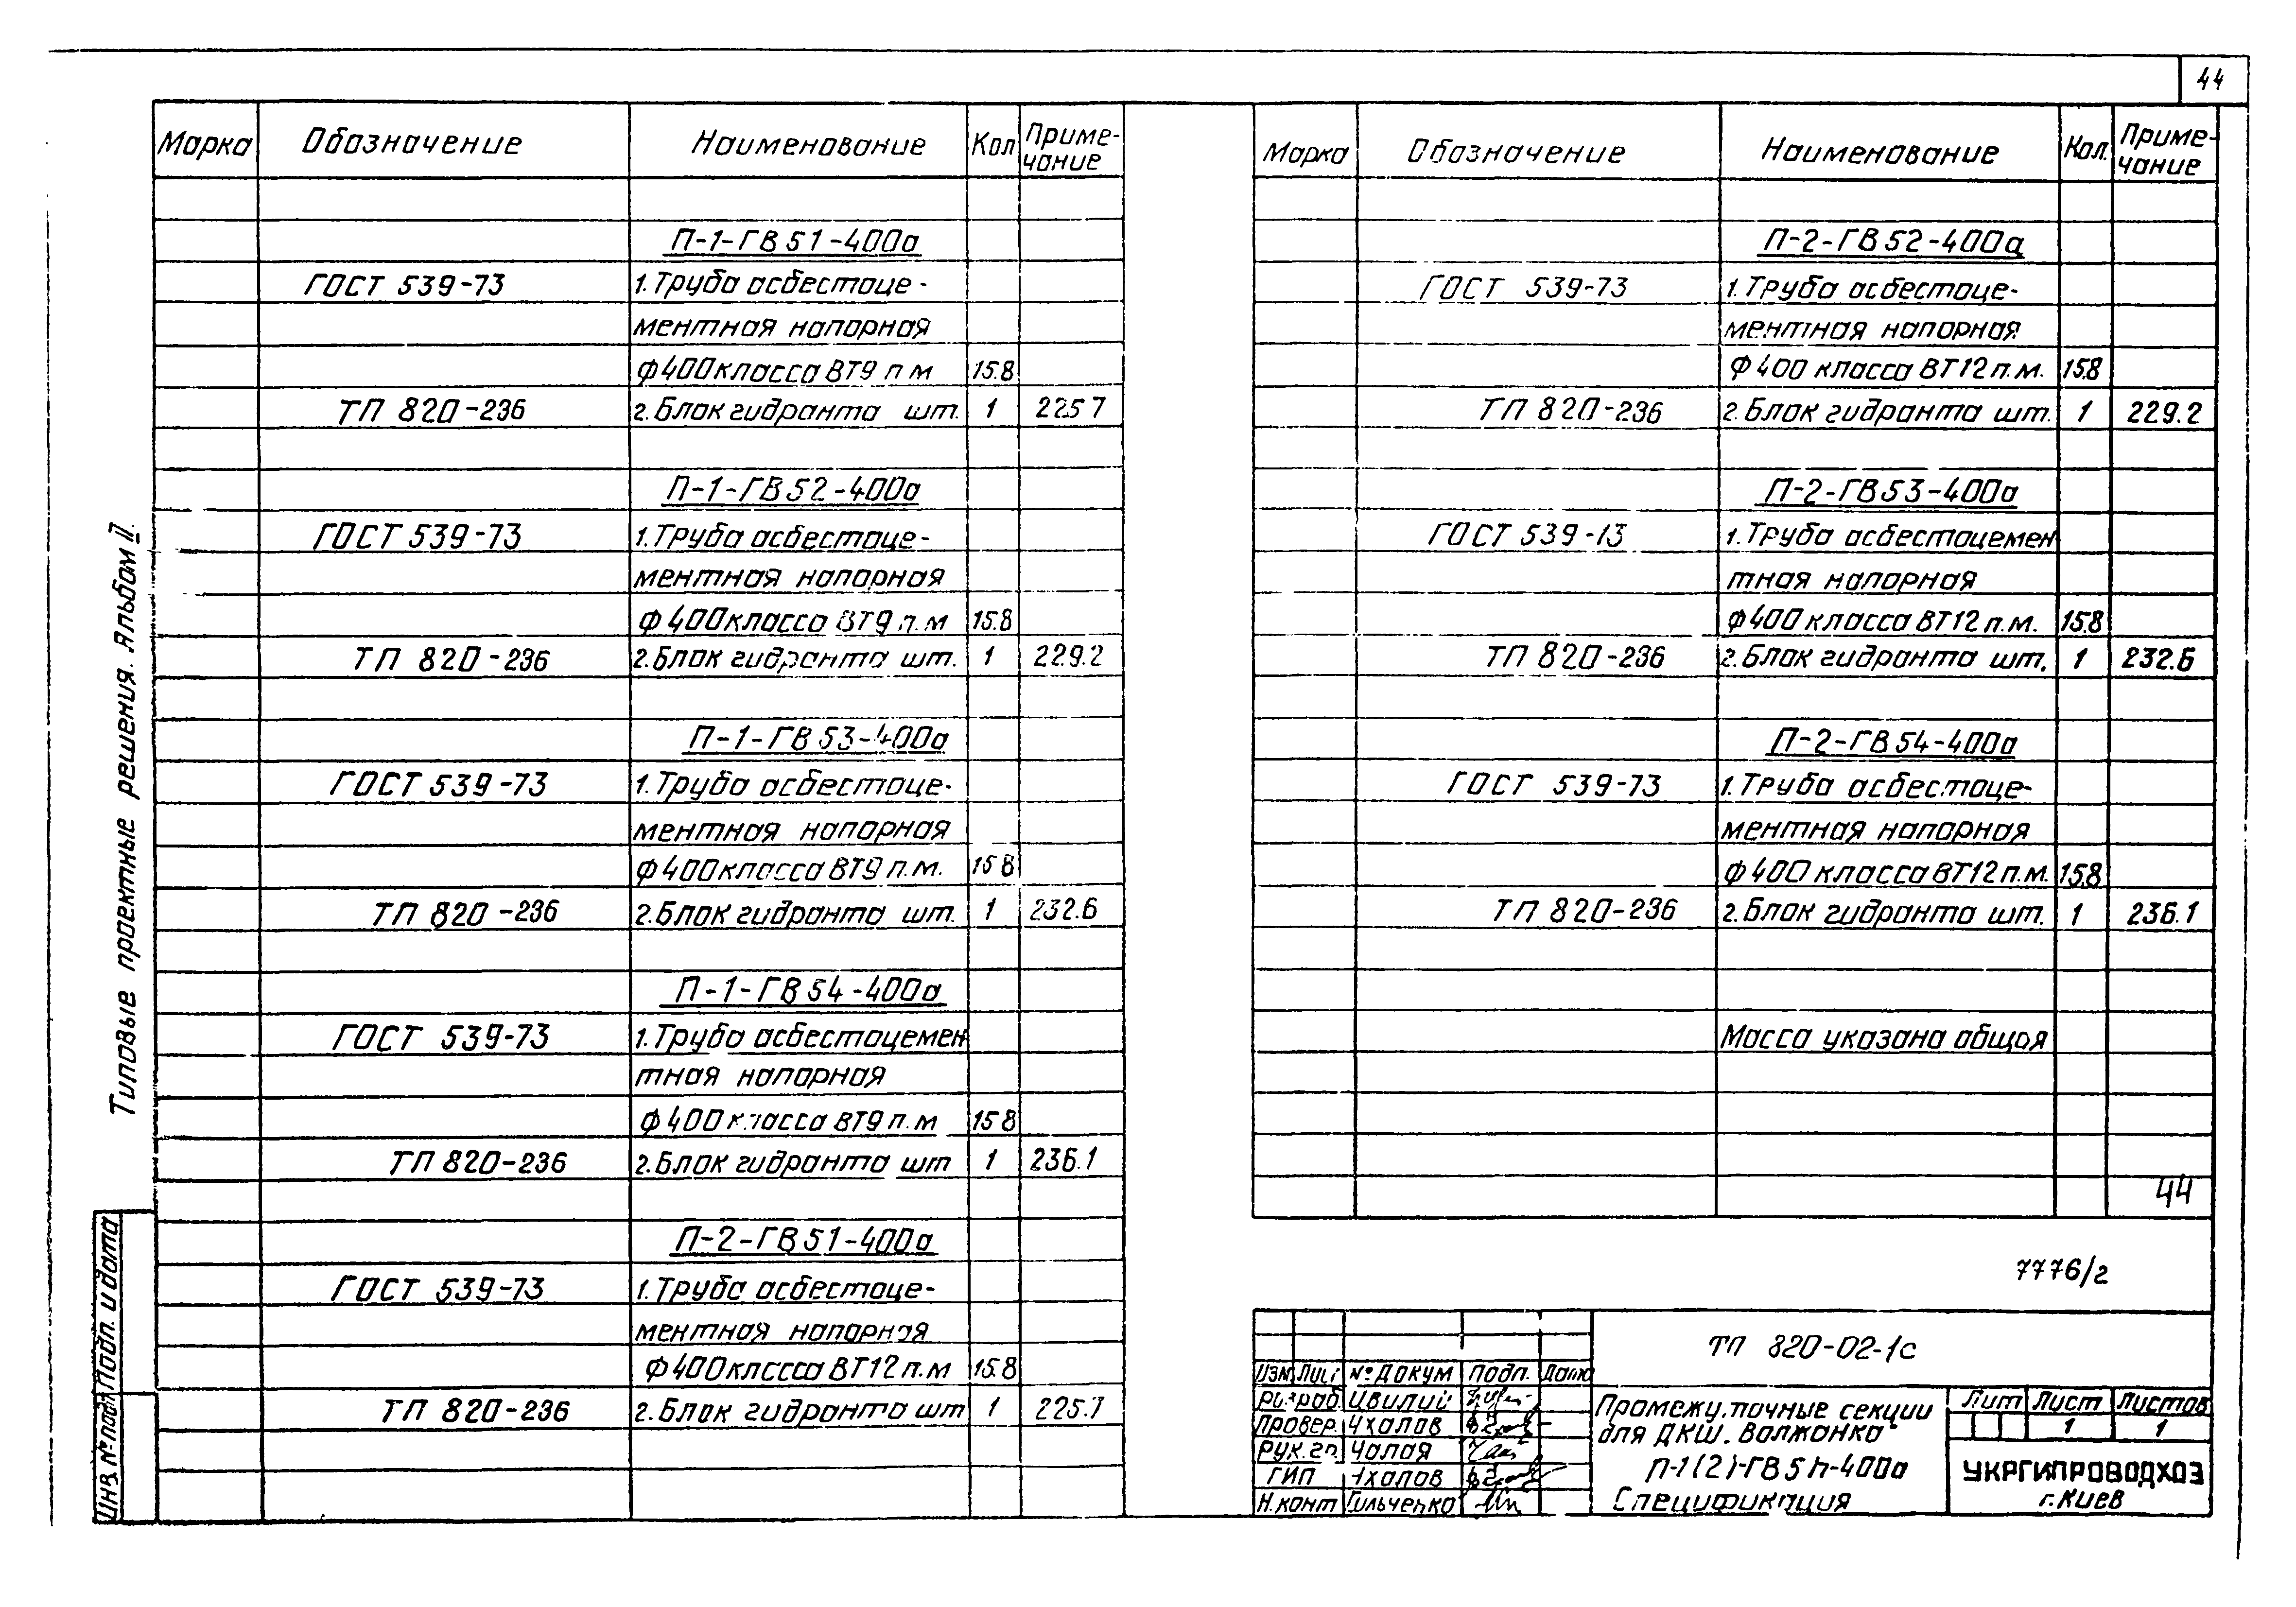 44
Марка Обозначение Наименование Кол Приме-
чание
П-1-ГВ51-400а
ГОСТ 539-73 1. Труба асбестоце-
ментная напорная
ф400 класса ВТ9 п м 15.8
ТП 820-236 2. Блок гидранта шт. 1 225 7
П-1-ГВ52-400а
ГОСТ 539-73 1. Труба асбестоце-
ментная напорная
ф400 класса ВТ9 п.м 15.8
ТП 820-236 2. Блок гидранта шт. 1 229.2
П-1-ГВ53-400а
ГОСТ 539-73 1. Труба асбестоце-
ментная напорная
ф400 класса ВТ9 п.м. 15 8
ТП 820-236 2. Блок гидранта шт. 1 232.6
П-1-ГВ54-400а
ГОСТ 539-73 1. Труба асбестоцемен
тная напорная
ф400 класса ВТ9 п.м 15 8
ТП 820-236 2. Блок гидранта шт 1 236.1
П-2-ГВ51-400а
ГОСТ 539-73 1. Труба асбестоце-
ментная напорная
ф400 класса ВТ12 п.м 15.8
ТП 820-236 2. Блок гидранта шт 1 225.7
Марка Обозначение Наименование Кол. Приме-
чание
П-2-ГВ52-400а
ГОСТ 539-73 1. Труба асбестоце-
ментная напорная
ф400 класса ВТ12 п.м. 15.8
ТП 820-236 2. Блок гидранта шт. 1 229.2
П-2-ГВ53-400а
ГОСТ 539-73 1. Труба асбестоцемен
тная напорная
ф400 класса ВТ12 п.м. 15.8
ТП 820-236 2. Блок гидранта шт. 1 232.6
П-2-ГВ54-400а
ГОСТ 539-73 1. Труба асбестоце-
ментная напорная
ф400 класса ВТ12 п.м. 15.8
ТП 820-236 2. Блок гидранта шт. 1 236.1
Масса указана общая
44
7776/2
Типовые проектные решения. Альбом II.
Подп. и дата
Инв. № подл
ТП 820-02-1с
Изм Лист № докум Подп. Дата
Разраб Ивилий
Провер. Чхалов
Рук. гр. Чалая
ГИП Чхалов
Н.конт Гильченко
Промежуточные секции
для ДКШ. Волжанка"
П-1(2)-ГВ5n-400а
Спецификация
Лит Лист Листов
1 1
УКРГИПРОВОДХОЗ
г. Киев